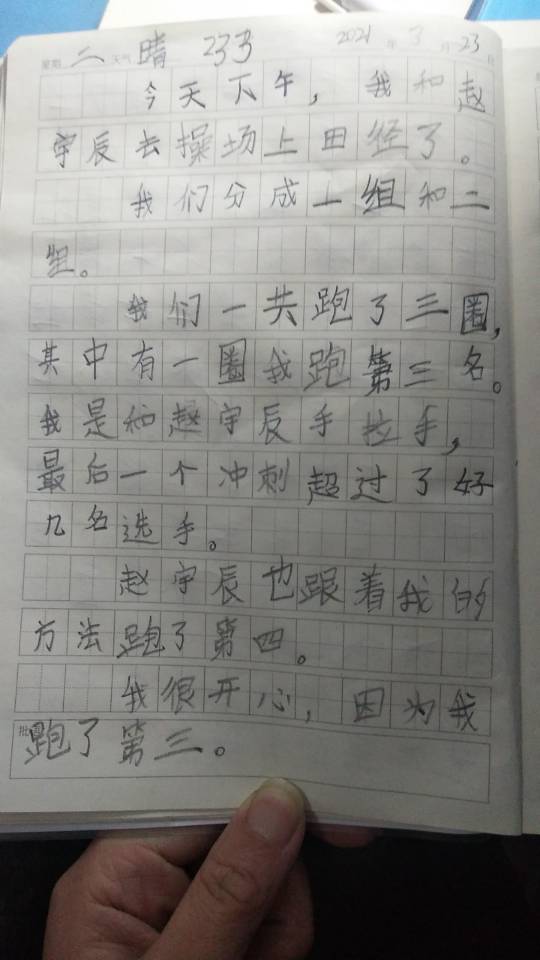 星期 二 天气 晴 233 2021 年 3 月 23 日
今天下午，我和赵
宇辰去操场上田径了。
我们分成一组和二
组。
我们一共跑了三圈，
其中有一圈我跑第三名。
我是和赵宇辰手拉手，
最后一个冲刺超过了好
几名选手。
赵宇辰也跟着我的
方法跑了第四。
我很开心，因为我
跑了第三。